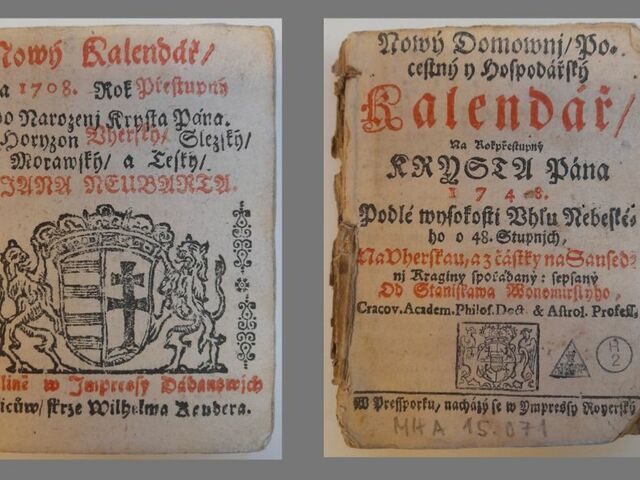 Nowý Kalendář/
a 1708. Rok Přestupný
po Narozenj Krysta Pána.
Horyzon Vherský/ Slezský/
Morawský/ a Český/
JANA NEUBARTA.
w Impressy Dádanowých
skrze Wilhelma Kendera.
Nowý Domownj/ Po-
cestný y Hospodářský
Kalendář/
Na Rokpřestupný
KRYSTA Pána
1748.
Podlé wysokosti Vhlu Nebeské-
ho o 48. Stupnjch,
Na Vherskau, a z částky na Sansed-
nj Kraginy spořádaný: sepsaný
Od Stanislawa
Cracov. Academ. Philos. Doct. & Astrol. Profess.
A
2
W Pressporku, nacházý se w Ympressy Royerský
MHA 15.071